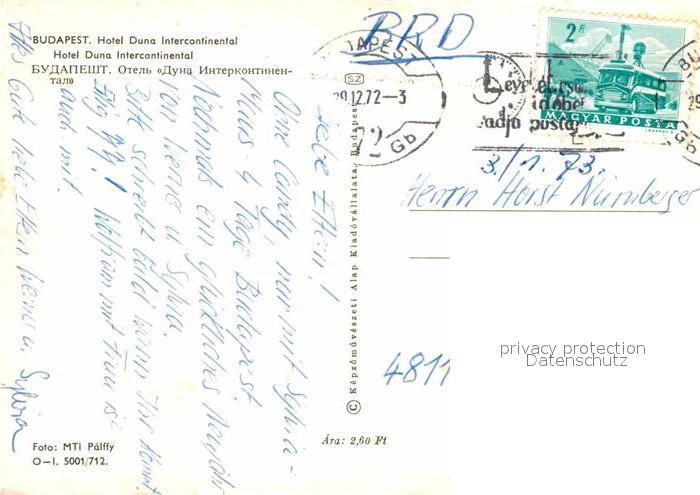 BUDAPEST. Hotel Duna Intercontinental
Hotel Duna Intercontinental
БУДАПЕШТ. Отель «Дуна Интерконтинен-
тал»
Liebe Eltern!
Ohne Candy, nur mit Sylvia -
Maus - 4 Tage Budapest
Nochmals ein glückliches Neujahr
von Heino u. Sylvia.
Bitte schreibt bald wann Ihr kommt
! Wolfram mit Frau ist
auch mit.
Alles Gute liebe Eltern Heino u. Sylvia
Foto: MTI Pálffy
O–I. 5001/712.
Ára: 2,60 Ft
© Képzőművészeti Alap Kiadóvállalata, Budapest
SZ
BRD
BUDAPEST
29.12.72–3
72
Gb
Levelet
időben
adja postára
2 Ft
MAGYAR POSTA
BUD
Gb
3./1.73.
Herrn Horst Nürnberger
4811
privacy protection
Datenschutz